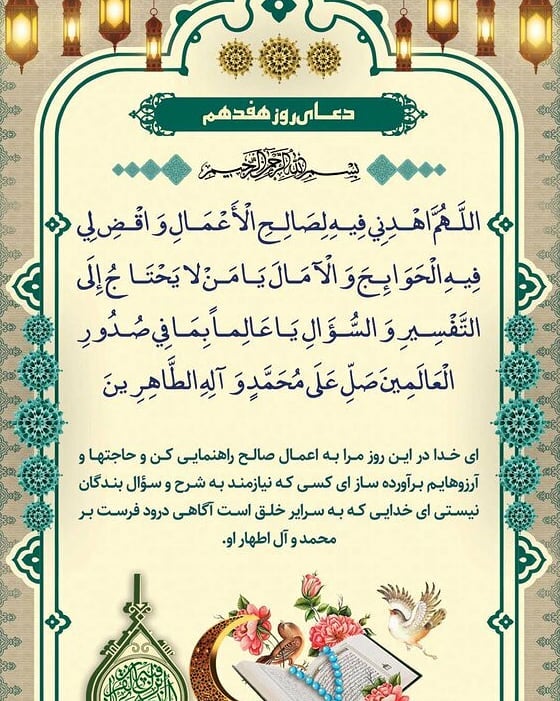 دعای روز هفدهم
بسم الله الرحمن الرحیم
اللَّهُمَّ اهْدِنِي فِيهِ لِصَالِحِ الْأَعْمَالِ وَ اقْضِ لِي
فِيهِ الْحَوَائِجَ وَ الْآمَالَ يَا مَنْ لا يَحْتَاجُ إِلَى
التَّفْسِيرِ وَ السُّؤَالِ يَا عَالِماً بِمَا فِي صُدُورِ
الْعَالَمِينَ صَلِّ عَلَى مُحَمَّدٍ وَ آلِهِ الطَّاهِرِينَ
ای خدا در این روز مرا به اعمال صالح راهنمایی کن و حاجتها و
آرزوهایم برآورده ساز ای کسی که نیازمند به شرح و سؤال بندگان
نیستی ای خدایی که به سرایر خلق است آگاهی درود فرست بر
محمد و آل اطهار او.